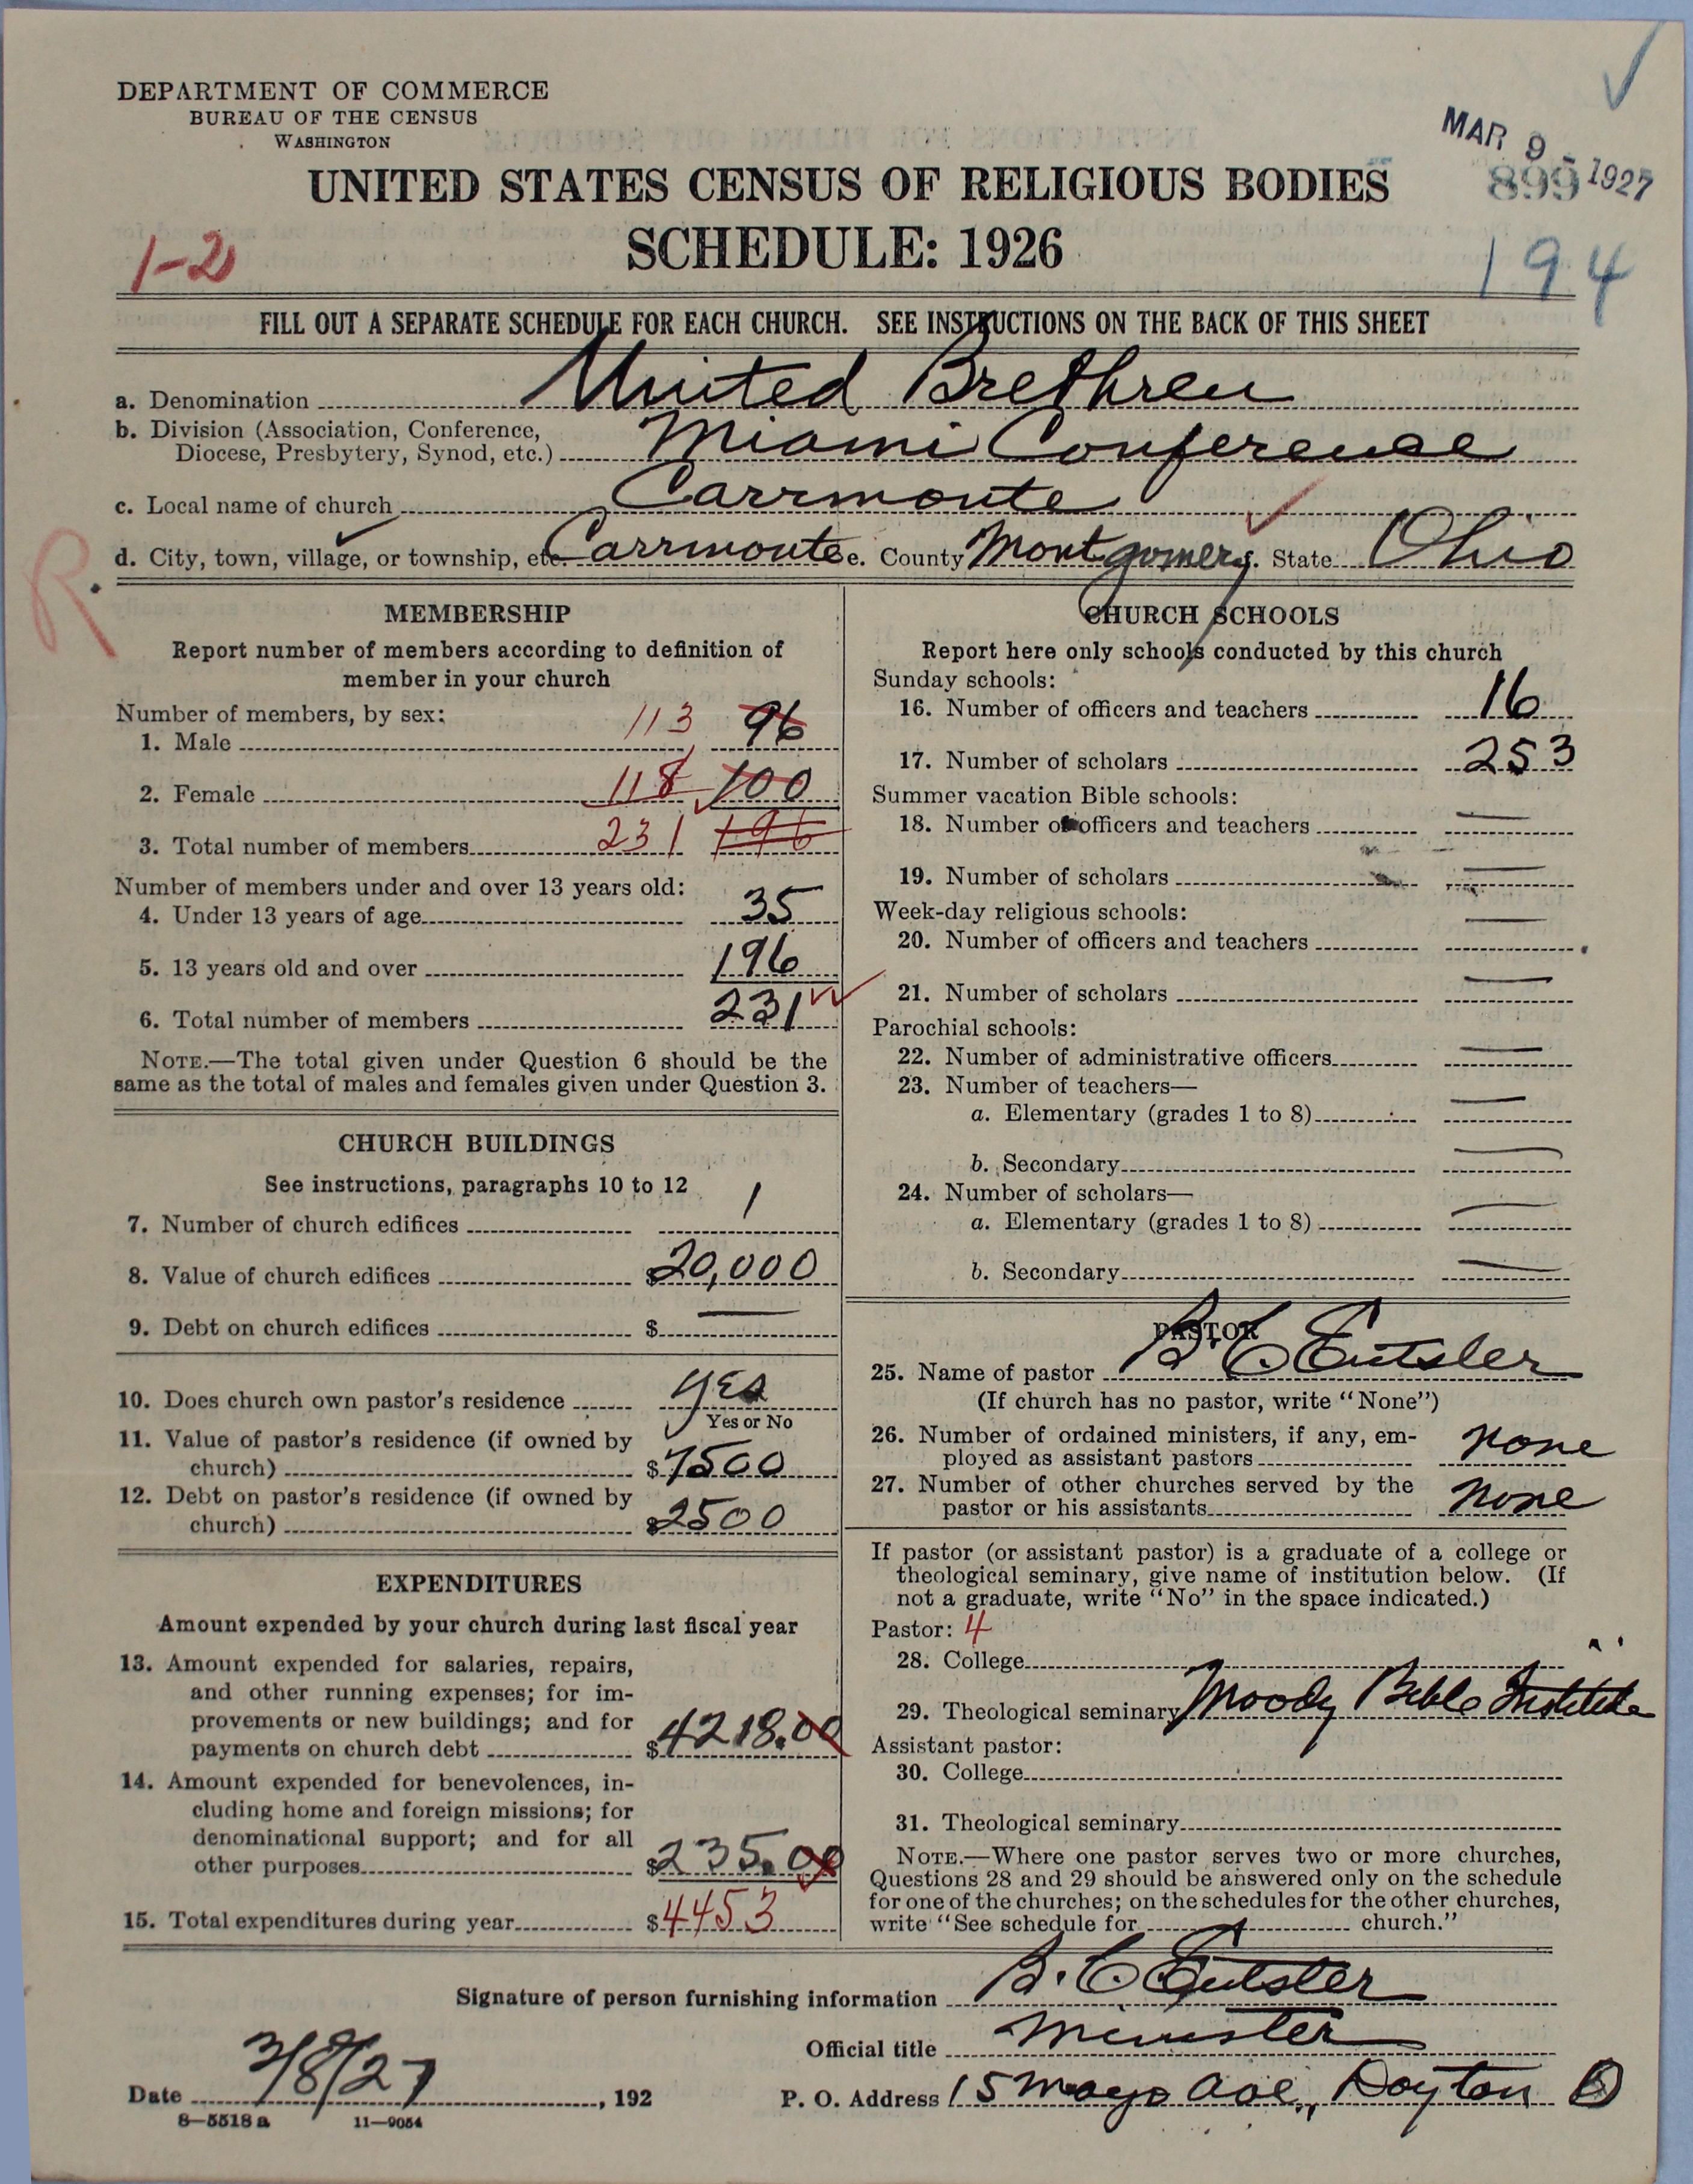 DEPARTMENT OF COMMERCE
BUREAU OF THE CENSUS
WASHINGTON
MAR 9 - 1927
899
UNITED STATES CENSUS OF RELIGIOUS BODIES
SCHEDULE: 1926
1-2
194
FILL OUT A SEPARATE SCHEDULE FOR EACH CHURCH. SEE INSTRUCTIONS ON THE BACK OF THIS SHEET
a. Denomination United Brethren
b. Division (Association, Conference,
Diocese, Presbytery, Synod, etc.) Miami Conference
c. Local name of church Carrmonte
d. City, town, village, or township, etc. Carrmonte e. County Montgomery f. State Ohio
R
MEMBERSHIP
Report number of members according to definition of
member in your church
Number of members, by sex:
1. Male 113 96
2. Female 118 100
3. Total number of members 231 196
Number of members under and over 13 years old:
4. Under 13 years of age 35
5. 13 years old and over 196
6. Total number of members 231
NOTE.—The total given under Question 6 should be the
same as the total of males and females given under Question 3.
CHURCH BUILDINGS
See instructions, paragraphs 10 to 12
7. Number of church edifices 1
8. Value of church edifices $20,000
9. Debt on church edifices $ —
10. Does church own pastor's residence yes
Yes or No
11. Value of pastor's residence (if owned by
church) $7500
12. Debt on pastor's residence (if owned by
church) $2500
EXPENDITURES
Amount expended by your church during last fiscal year
13. Amount expended for salaries, repairs,
and other running expenses; for im-
provements or new buildings; and for
payments on church debt $4218.00
14. Amount expended for benevolences, in-
cluding home and foreign missions; for
denominational support; and for all
other purposes $235.00
15. Total expenditures during year $4453
CHURCH SCHOOLS
Report here only schools conducted by this church
Sunday schools:
16. Number of officers and teachers 16
17. Number of scholars 253
Summer vacation Bible schools:
18. Number of officers and teachers —
19. Number of scholars —
Week-day religious schools:
20. Number of officers and teachers —
21. Number of scholars —
Parochial schools:
22. Number of administrative officers —
23. Number of teachers—
a. Elementary (grades 1 to 8) —
b. Secondary —
24. Number of scholars—
a. Elementary (grades 1 to 8) —
b. Secondary —
PASTOR
25. Name of pastor B. C. Eutsler
(If church has no pastor, write "None")
26. Number of ordained ministers, if any, em-
ployed as assistant pastors none
27. Number of other churches served by the
pastor or his assistants none
If pastor (or assistant pastor) is a graduate of a college or
theological seminary, give name of institution below. (If
not a graduate, write "No" in the space indicated.)
Pastor: 4
28. College
29. Theological seminary Moody Bible Institute
Assistant pastor:
30. College
31. Theological seminary
NOTE.—Where one pastor serves two or more churches,
Questions 28 and 29 should be answered only on the schedule
for one of the churches; on the schedules for the other churches,
write "See schedule for church."
Signature of person furnishing information B. C. Eutsler
Official title Minister
Date 3/8/27, 192
P. O. Address 15 Mayo Ave., Dayton O
8—5518 a 11—9054